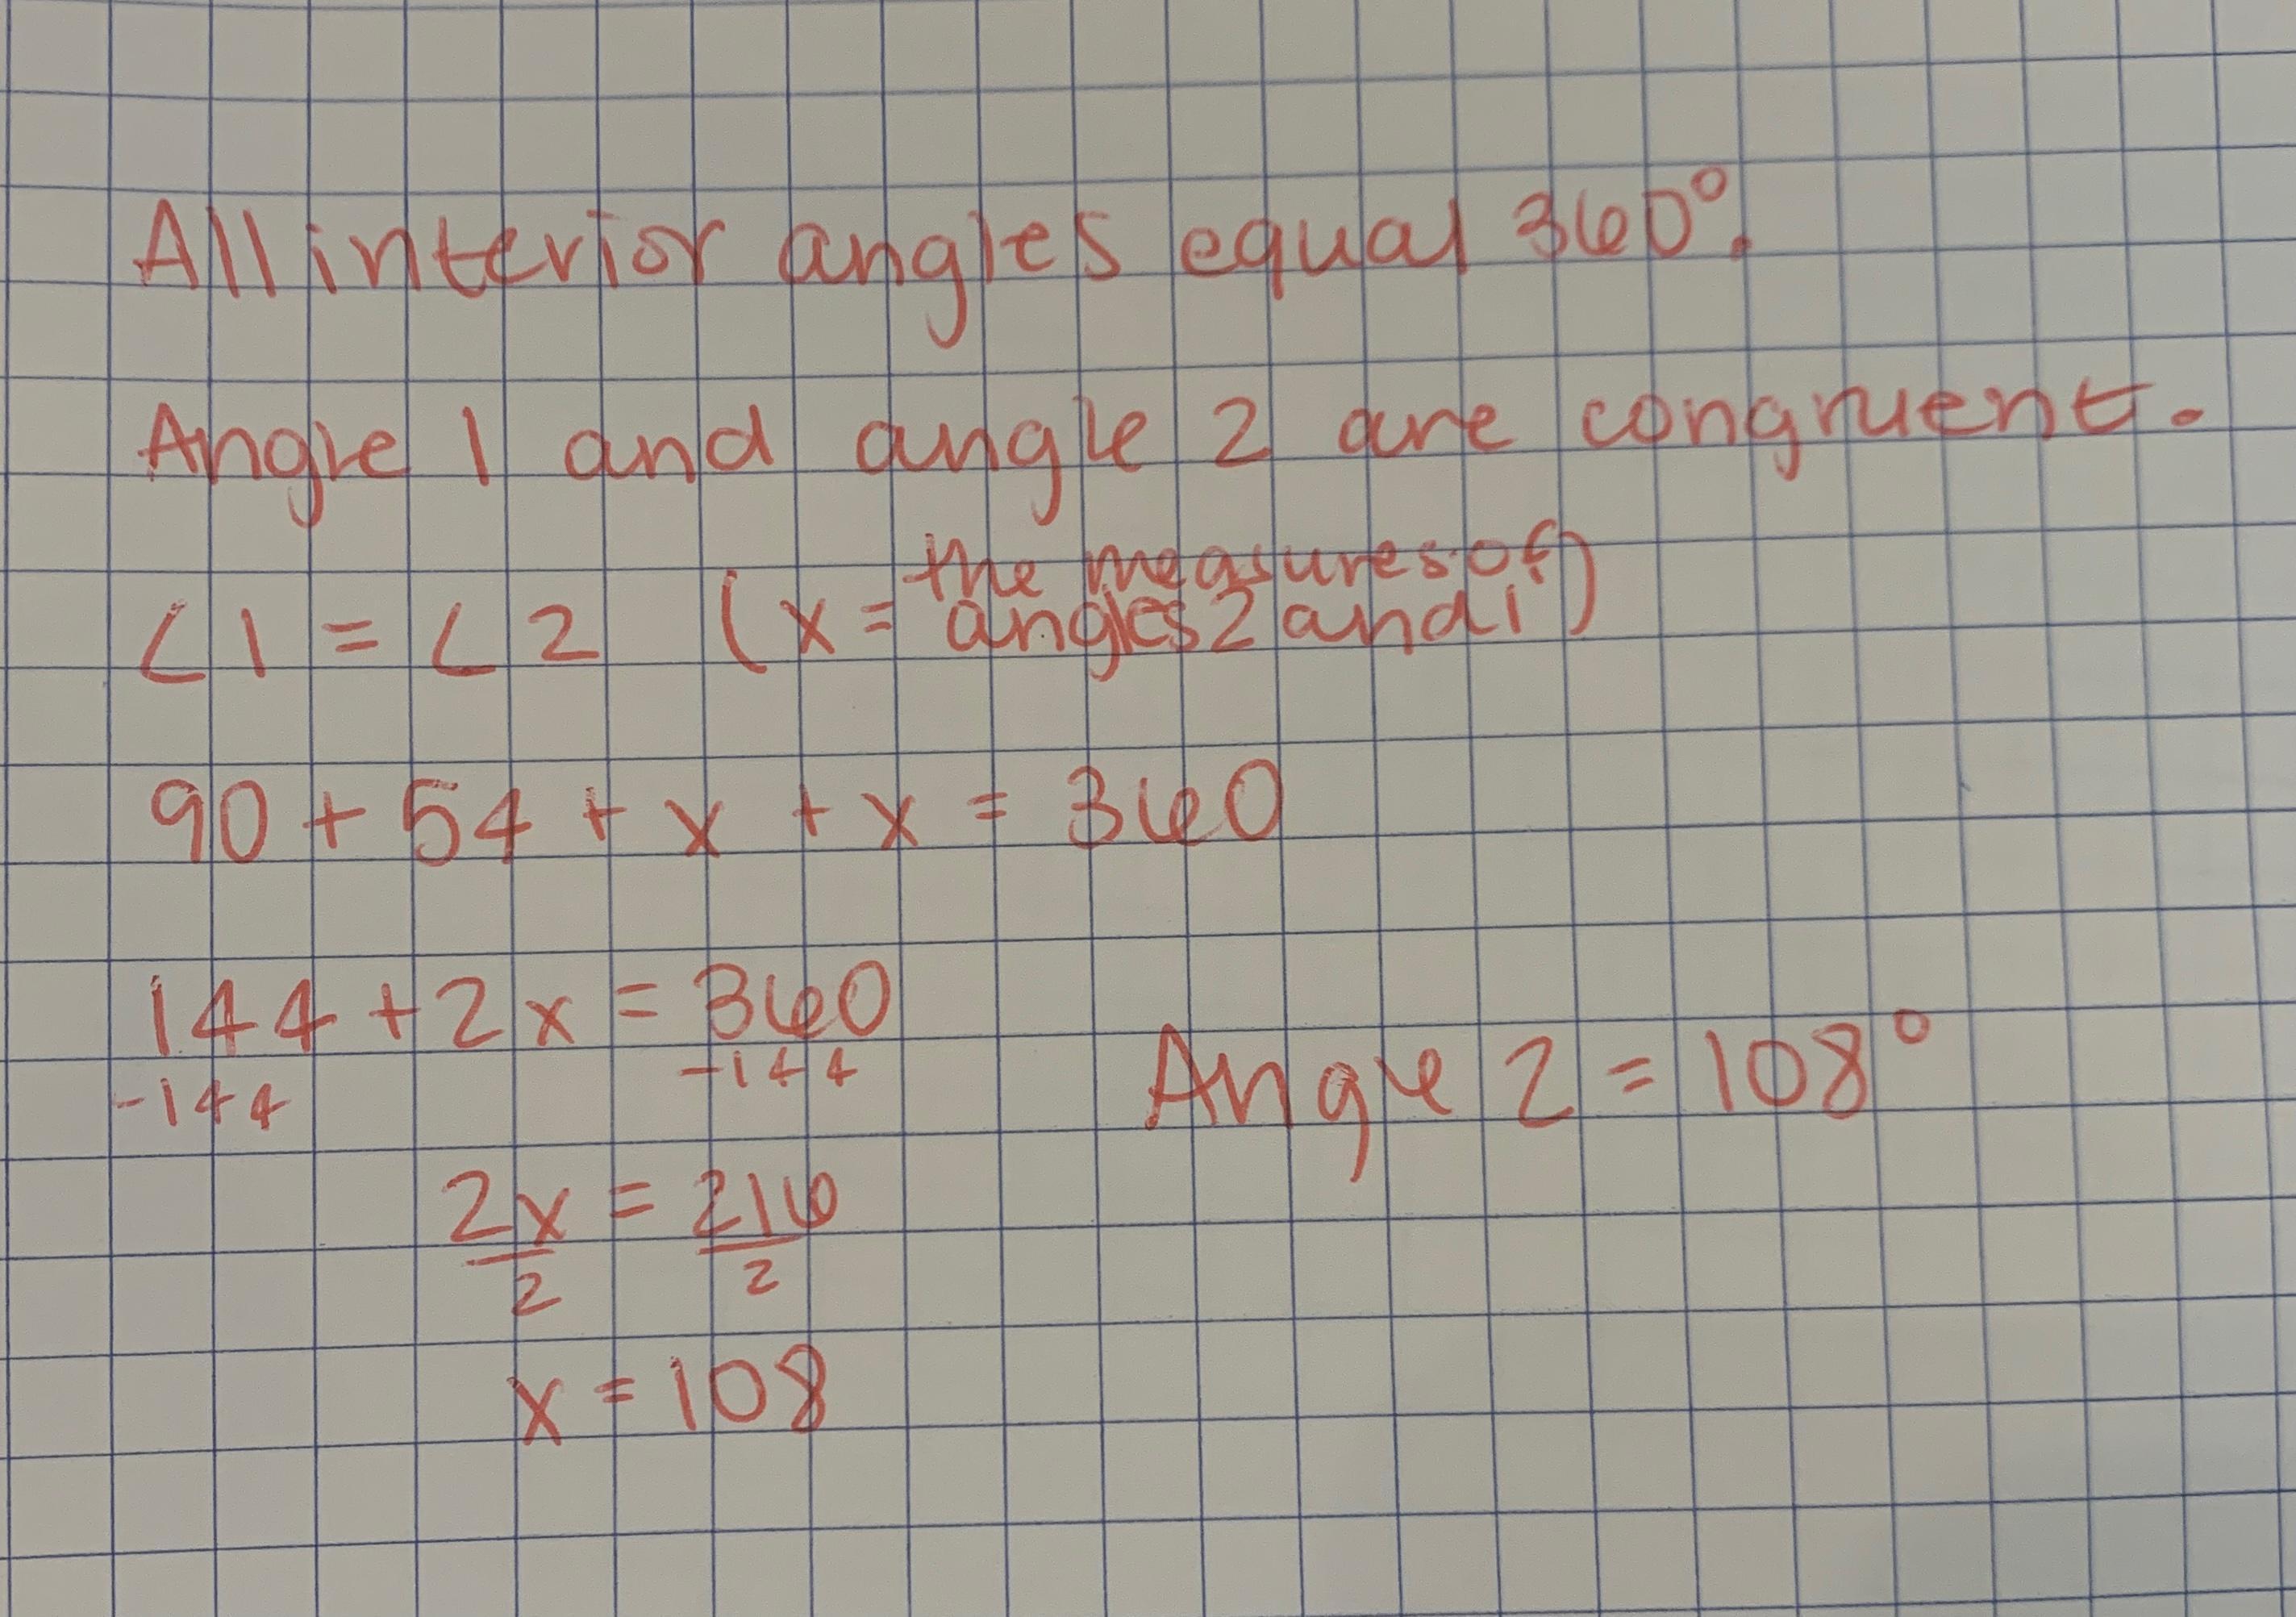 All interior angles equal 360°.
Angle 1 and angle 2 are congruent.
∠1 = ∠2 (x = the measures of angles 2 and 1)
90 + 54 + x + x = 360
144 + 2x = 360
-144 -144
2x = 216
2 2
x = 108
Angle 2 = 108°